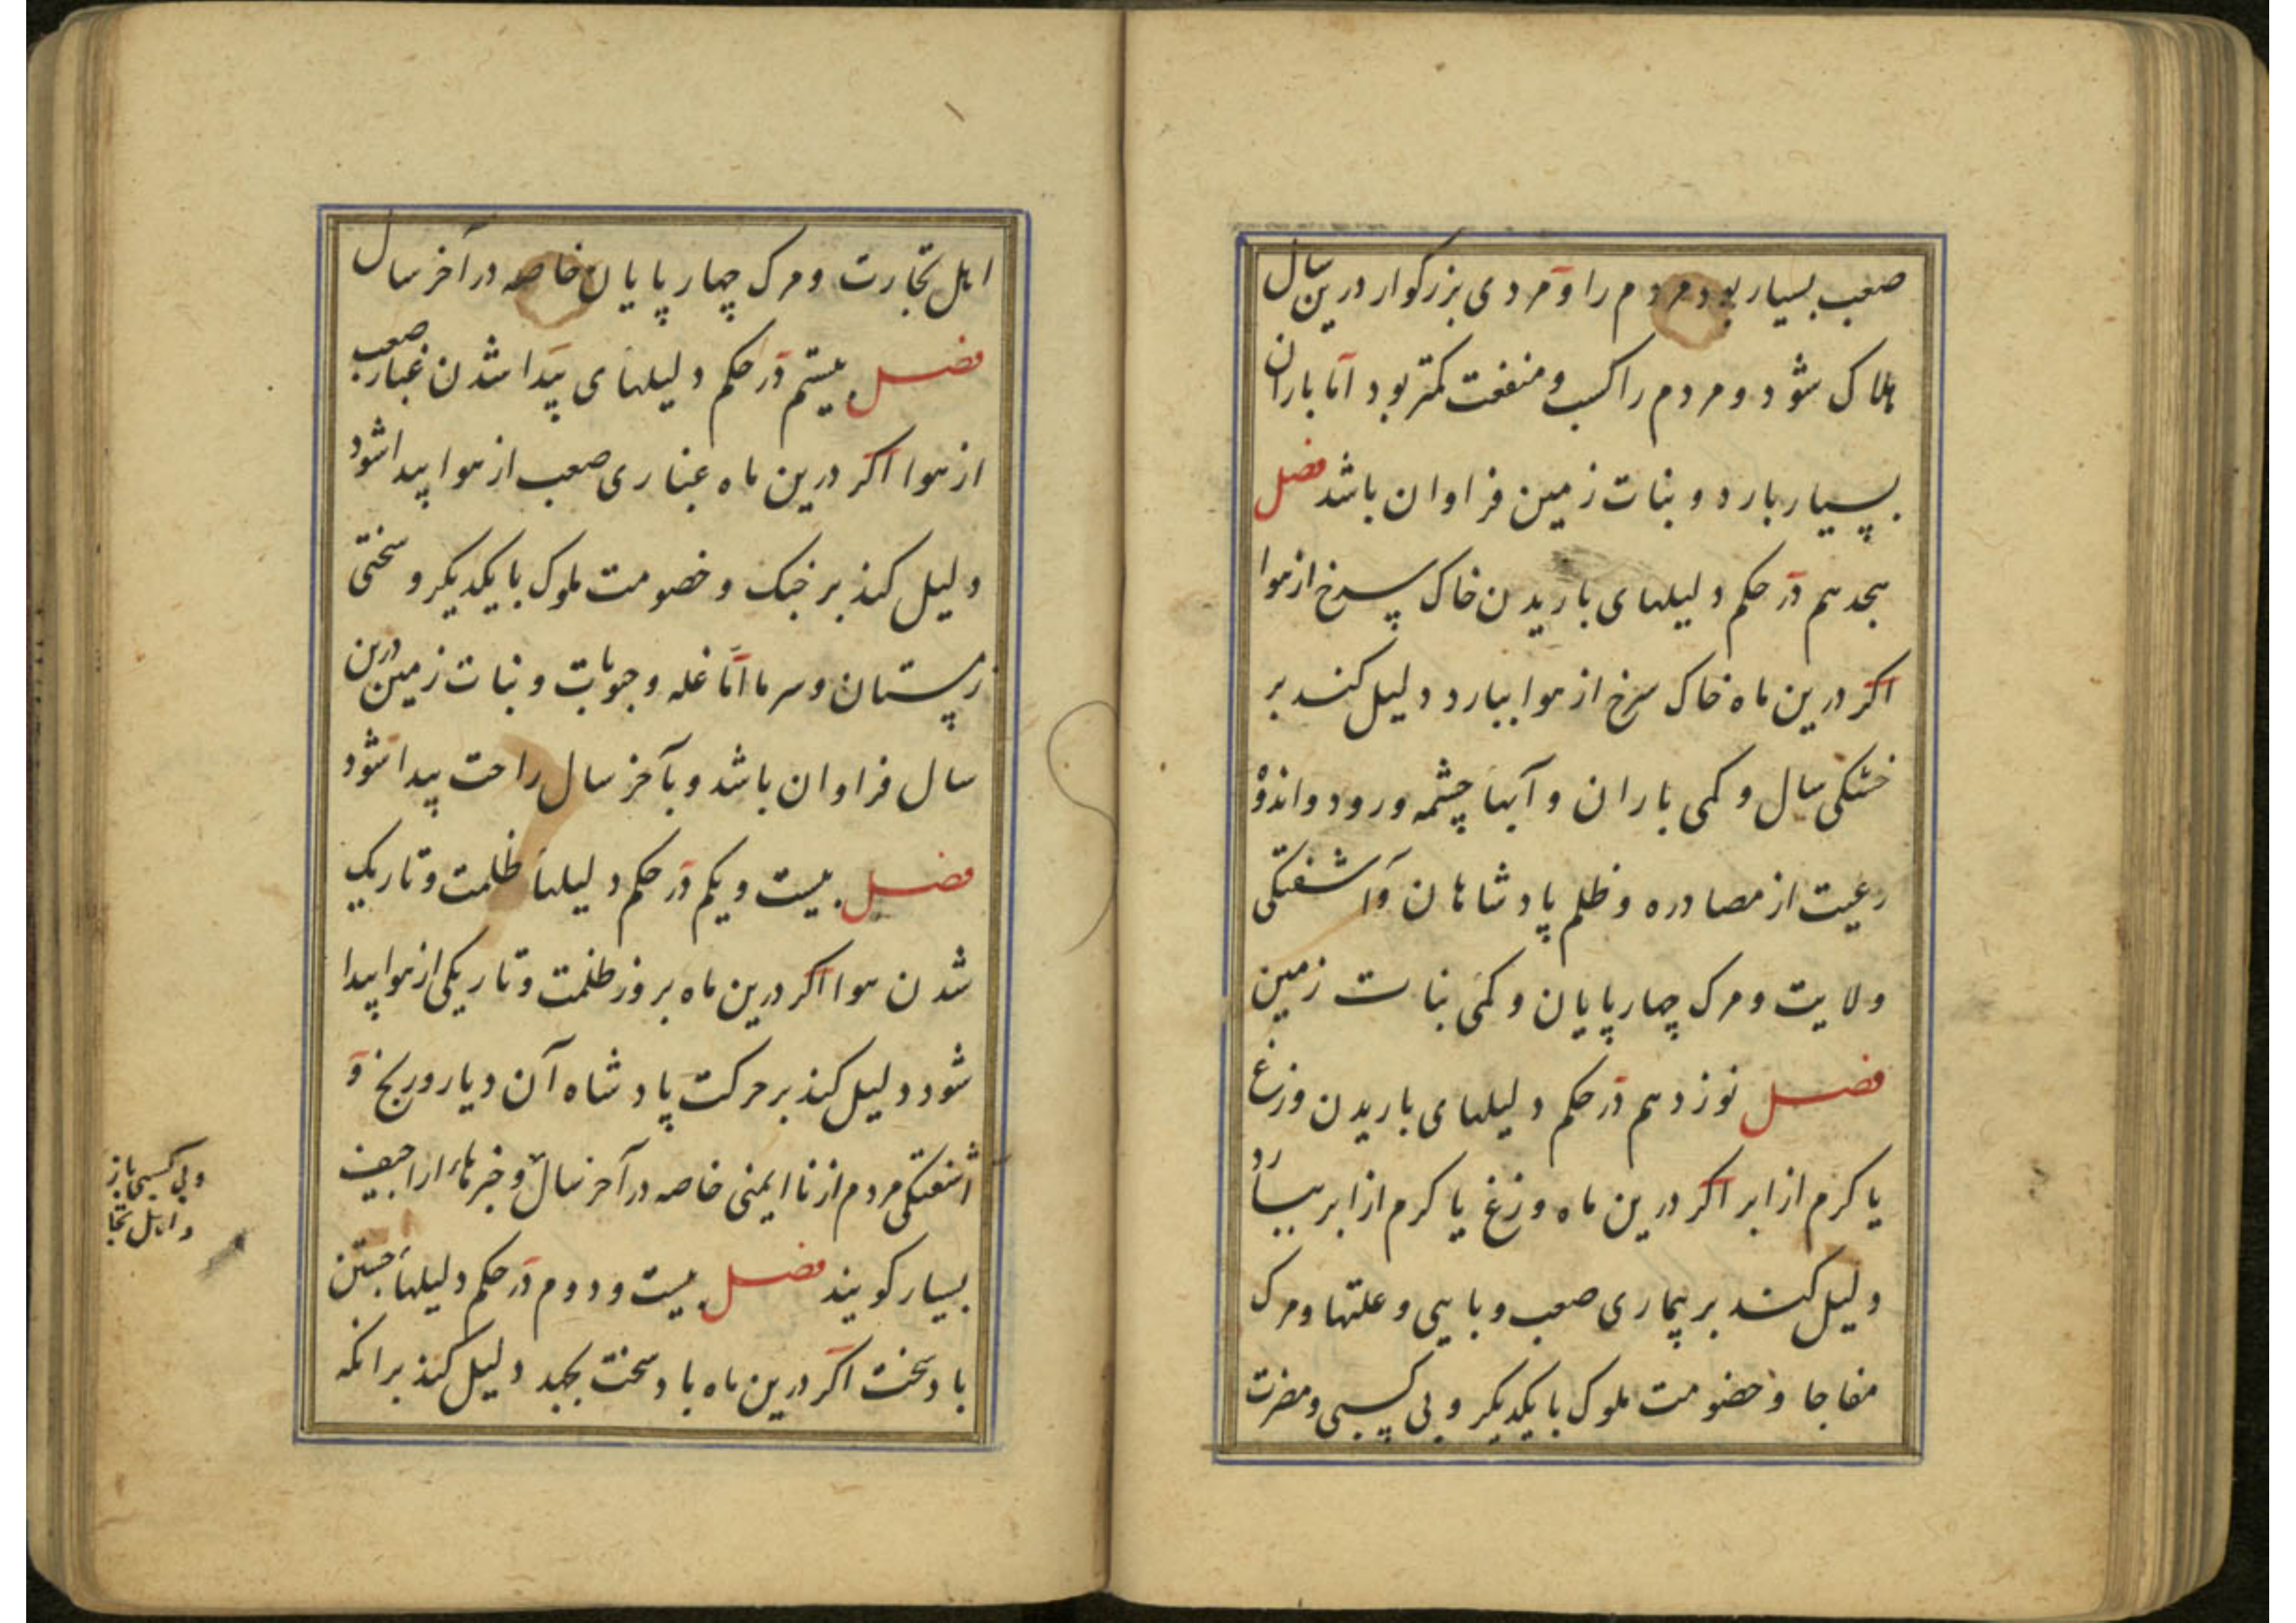 صعب بسیار بود مردم را و مردی بزرکوار درین سال
هلاک شود و مردم را کسب و منفعت کمتر بود اما باران
بسیار بارد و نبات زمین فراوان باشد فصل
هجدهم در حکم دلیلهای باریدن خاک سرخ از هوا
اکر درین ماه خاک سرخ از هوا ببارد دلیل کند بر
خشکی سال و کمی باران و آبها چشمه و رود و اندوه
رعیت از مصادره و ظلم پادشاهان و آشفتکی
ولایت و مرک چهارپایان و کمی نبات زمین
فصل نوزدهم در حکم دلیلهای باریدن وزغ
یا کرم از ابر اکر درین ماه وزغ یا کرم از ابر ببارد
دلیل کند بر بیماری صعب و وبایی و علتها و مرک
مفاجا و خصومت ملوک با یکدیکر و بی کسبی و مضرت
اهل تجارت و مرک چهارپایان خاصه در آخر سال
فصل بیستم در حکم دلیلهای پیدا شدن غبار صعب
از هوا اکر درین ماه غباری صعب از هوا پیدا شود
دلیل کند بر جنک و خصومت ملوک با یکدیکر و سختی
زمستان و سرما اما غله و حبوبات و نبات زمین درین
سال فراوان باشد و بآخر سال راحت پیدا شود
فصل بیست و یکم در حکم دلیلها ظلمت و تاریک
شدن هوا اکر درین ماه بروز ظلمت و تاریکی از هوا پیدا
شود دلیل کند بر حرکت پادشاه آن دیار و رنج و
آشفتکی مردم از ناایمنی خاصه در آخر سال و خبرهاء اراجیف
بسیار کویند فصل بیست و دوم در حکم دلیلها جستن
باد سخت اکر درین ماه باد سخت بجهد دلیل کند برانکه
و بی کسبی
و اهل تجا